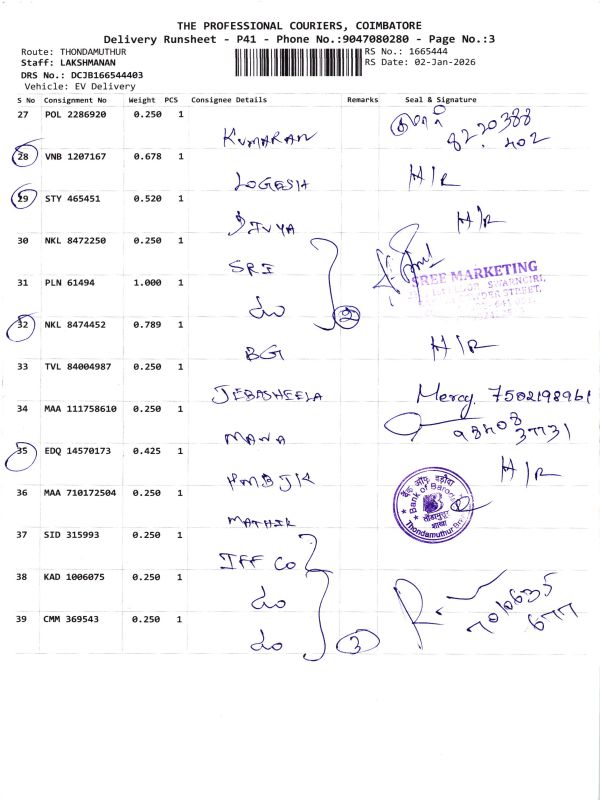 THE PROFESSIONAL COURIERS, COIMBATORE
Delivery Runsheet - P41 - Phone No.:9047080280 - Page No.:3
Route: THONDAMUTHUR RS No.: 1665444
Staff: LAKSHMANAN RS Date: 02-Jan-2026
DRS No.: DCJB166544403
Vehicle: EV Delivery
S No Consignment No Weight PCS Consignee Details Remarks Seal & Signature
27 POL 2286920 0.250 1 KUMARAN 8220388 402
28 VNB 1207167 0.678 1 LOGESH H/R
29 STY 465451 0.520 1 DIVYA H/R
30 NKL 8472250 0.250 1 SRI
SREE MARKETING
31 PLN 61494 1.000 1 do 2
32 NKL 8474452 0.789 1 BG H/R
33 TVL 84004987 0.250 1 JEBASHEELA Mercy. 7502198961
34 MAA 111758610 0.250 1 MANA 98408 37731
35 EDQ 14570173 0.425 1 HMBJK H/R
36 MAA 710172504 0.250 1 MATHIK
बैंक ऑफ़ बड़ौदा
Bank of Baroda
शाखा
Thondamuthur
37 SID 315993 0.250 1 IFF CO
38 KAD 1006075 0.250 1 do 7010635 677
39 CMM 369543 0.250 1 do 3